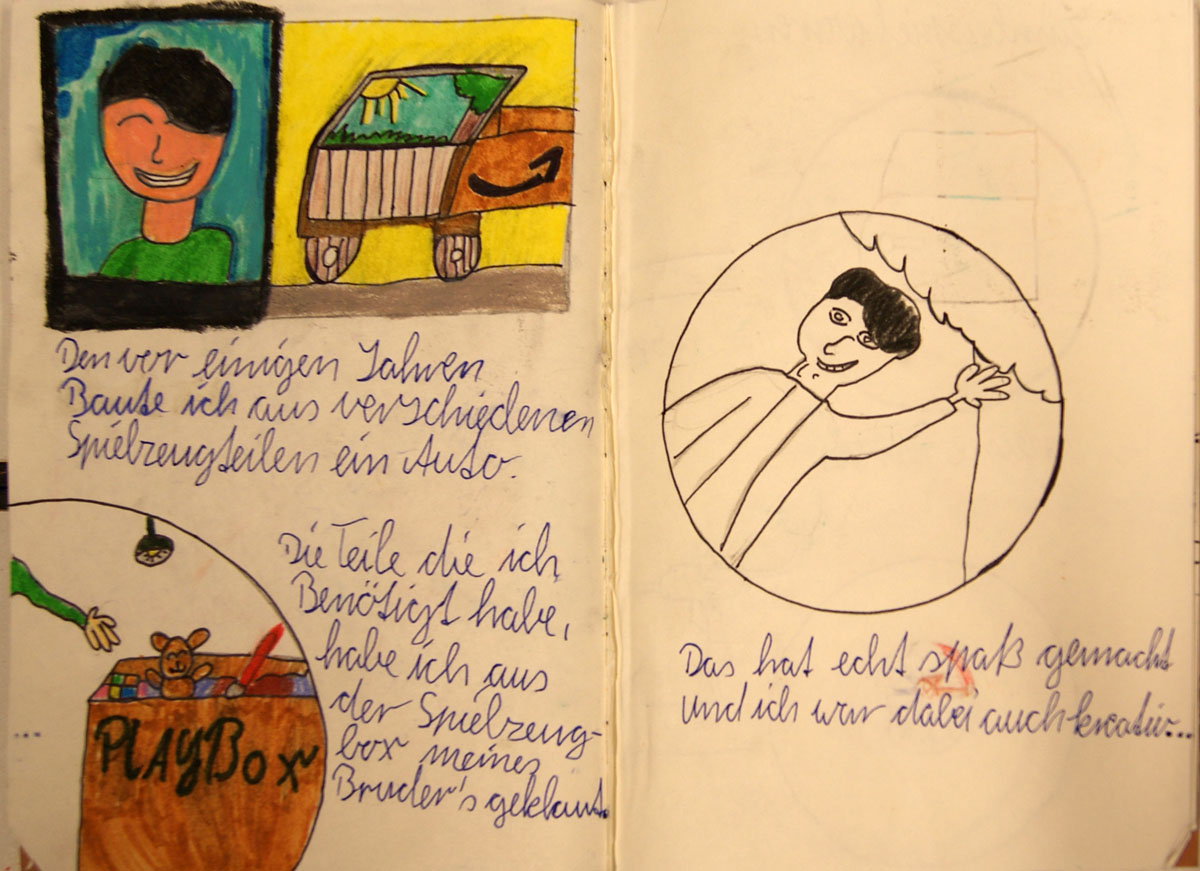 Den vor einigen Jahren
Baute ich aus verschiedenen
Spielzeugteilen ein Auto.
Die Teile die ich
Benötigt habe,
habe ich aus
der Spielzeug-
box meines
Bruder's geklaut.
PLAYBox
Das hat echt spaß gemacht
und ich war dabei auch kreativ...